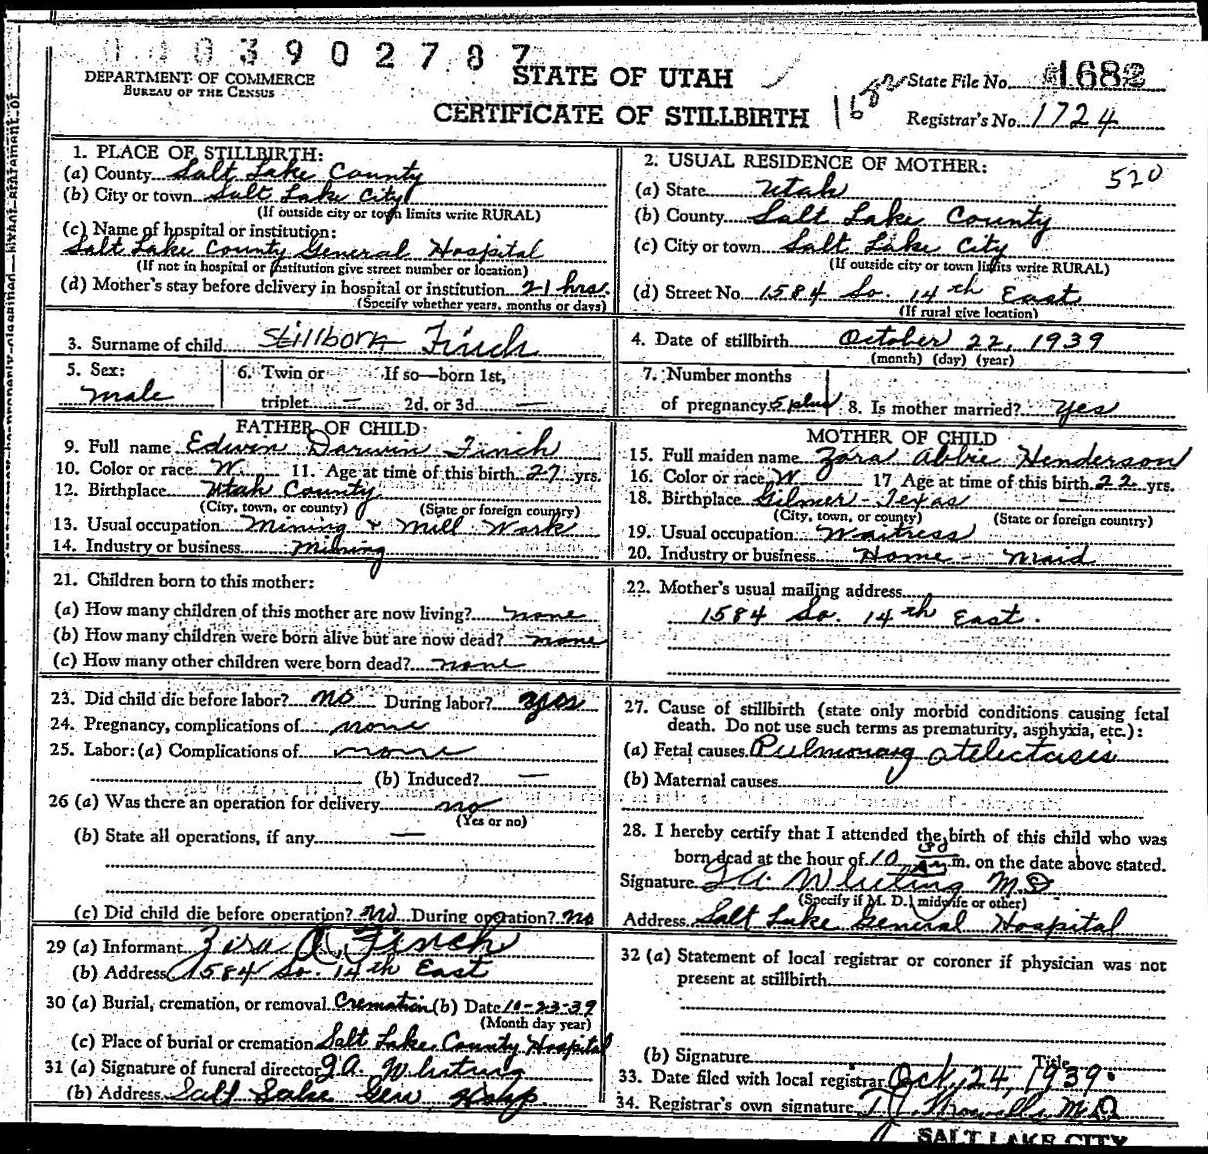 0003902787
DEPARTMENT OF COMMERCE
BUREAU OF THE CENSUS
STATE OF UTAH
CERTIFICATE OF STILLBIRTH
1682
State File No. 1682
Registrar's No. 1724
1. PLACE OF STILLBIRTH:
(a) County Salt Lake County
(b) City or town Salt Lake City
(If outside city or town limits write RURAL)
(c) Name of hospital or institution:
Salt Lake County General Hospital
(If not in hospital or institution give street number or location)
(d) Mother's stay before delivery in hospital or institution 21 hrs.
(Specify whether years, months or days)
2. USUAL RESIDENCE OF MOTHER:
520
(a) State Utah
(b) County Salt Lake County
(c) City or town Salt Lake City
(If outside city or town limits write RURAL)
(d) Street No. 1584 So. 14th East
(If rural give location)
3. Surname of child Stillborn Finch
4. Date of stillbirth October 22, 1939
(month) (day) (year)
5. Sex:
male
6. Twin or If so—born 1st,
triplet — 2d. or 3d —
7. Number months
of pregnancy 5 plus
8. Is mother married? yes
FATHER OF CHILD
9. Full name Edwin Darwin Finch
10. Color or race W. 11. Age at time of this birth 27 yrs.
12. Birthplace Utah County
(City, town, or county) (State or foreign country)
13. Usual occupation Mining & Mill Work
14. Industry or business Mining
MOTHER OF CHILD
15. Full maiden name Zora Abbie Henderson
16. Color or race W 17 Age at time of this birth 22 yrs.
18. Birthplace Gilmer - Texas
(City, town, or county) (State or foreign country)
19. Usual occupation Waitress
20. Industry or business Home - maid
21. Children born to this mother:
(a) How many children of this mother are now living? none
(b) How many children were born alive but are now dead? none
(c) How many other children were born dead? none
22. Mother's usual mailing address
1584 So. 14th East.
23. Did child die before labor? no During labor? yes
24. Pregnancy, complications of none
25. Labor: (a) Complications of none
(b) Induced? —
26 (a) Was there an operation for delivery no
(Yes or no)
(b) State all operations, if any —
(c) Did child die before operation? no During operation? no
27. Cause of stillbirth (state only morbid conditions causing fetal
death. Do not use such terms as prematurity, asphyxia, etc.):
(a) Fetal causes Pulmonary atelectasis
(b) Maternal causes
28. I hereby certify that I attended the birth of this child who was
born dead at the hour of 10 m. on the date above stated.
Signature A. Whiting MD
(Specify if M. D., midwife or other)
Address Salt Lake General Hospital
29 (a) Informant Zora A. Finch
(b) Address 1584 So. 14th East
30 (a) Burial, cremation, or removal Cremation (b) Date 10-23-39
(Month day year)
(c) Place of burial or cremation Salt Lake County Hospital
31 (a) Signature of funeral director A. Whiting
(b) Address Salt Lake Gen Hosp.
32 (a) Statement of local registrar or coroner if physician was not
present at stillbirth
(b) Signature Title
33. Date filed with local registrar Oct, 24, 1939.
34. Registrar's own signature M.D
SALT LAKE CITY